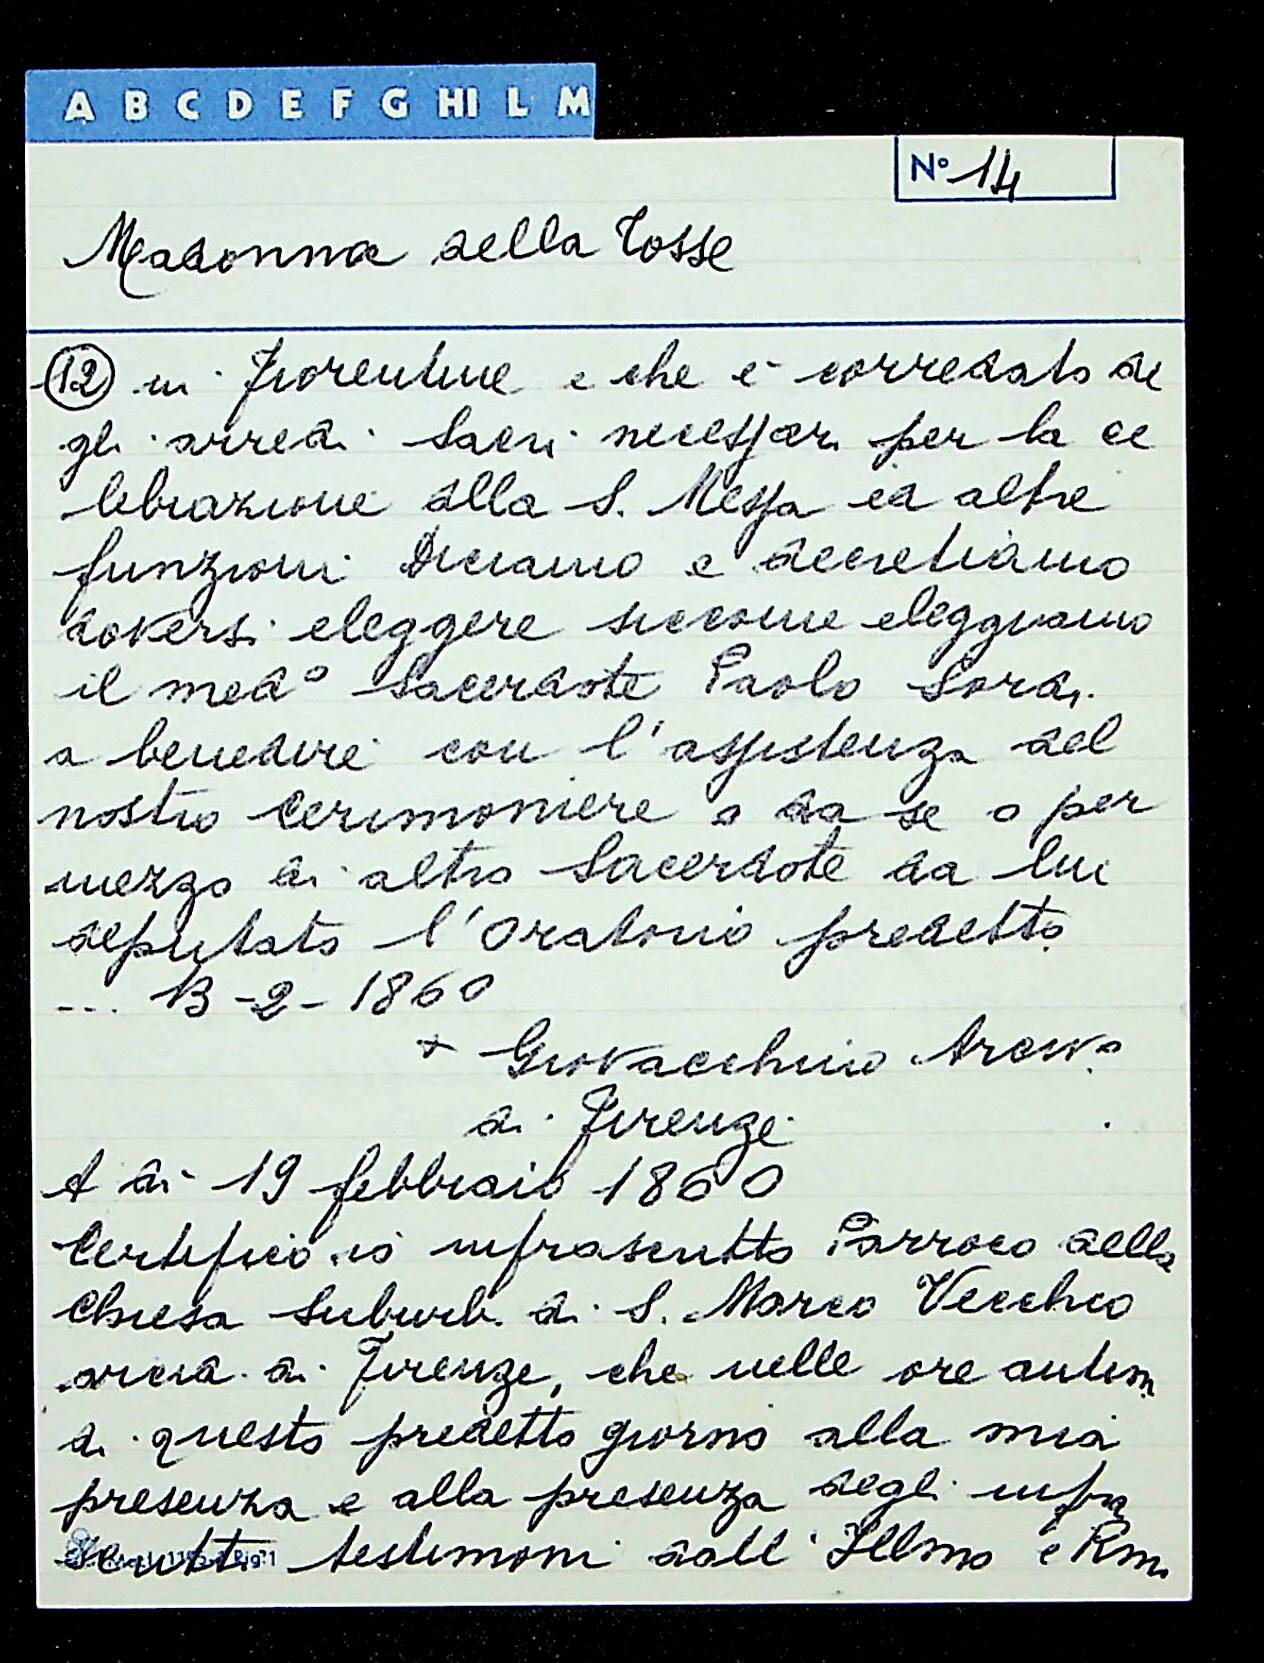 A B C D E F G HI L M
N° 14
Madonna della Tosse
(12) in Fiorentine e che è corredato de
gli arredi Sacri necessari per la ce
lebrazione della S. Messa ed altre
funzioni Diciamo e decretiamo
doversi eleggere siccome eleggiamo
il med° Sacerdote Paolo Sordi
a benedire con l'assistenza del
nostro Cerimoniere o da se o per
mezzo di altro Sacerdote da lui
deputato l'Oratorio predetto
... 13-2-1860
+ Giovacchino Arciv°
di Firenze
A di 19 febbraio 1860
Certifico io infrascritto Parroco della
Chiesa Suburb. di S. Marco Vecchio
di Firenze, che nelle ore antim
di questo predetto giorno alla mia
presenza e alla presenza degli infra
scritti testimoni dall' Illmo e Rm.